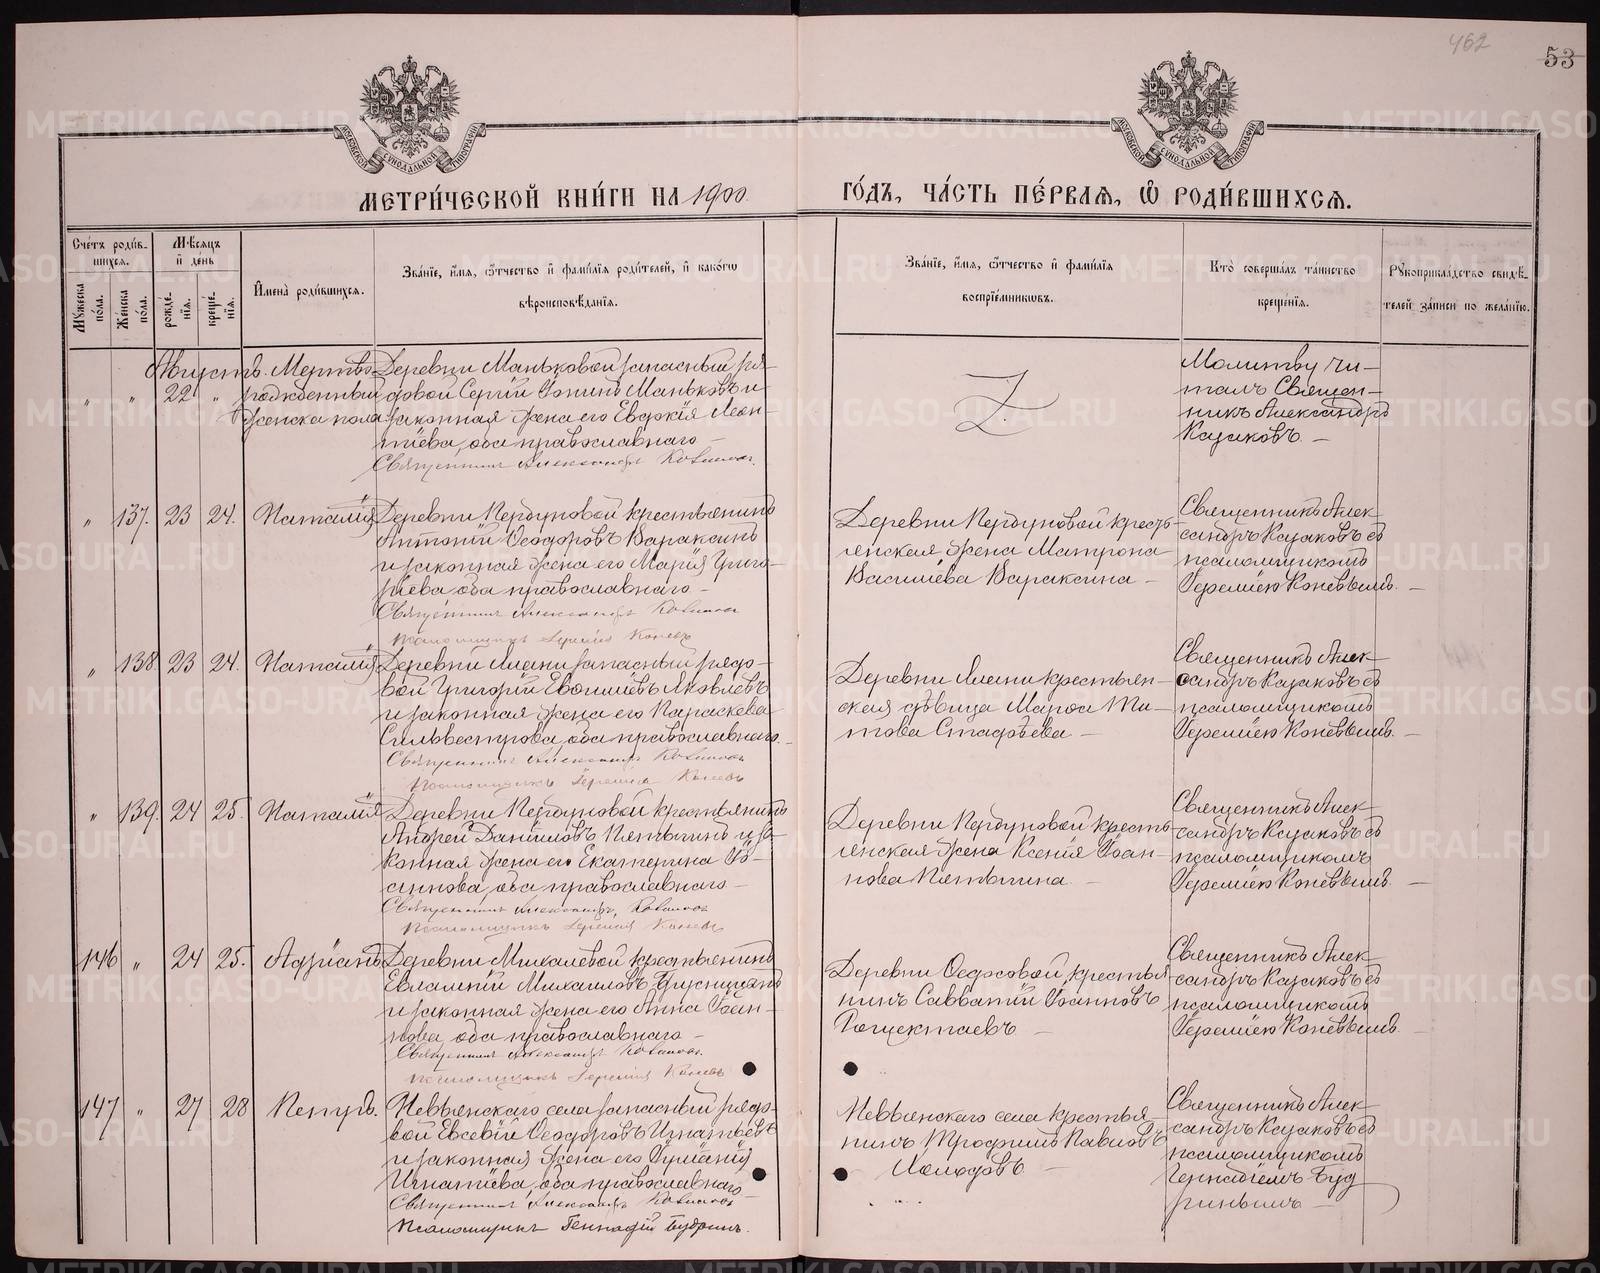 462
53
МЕТРИ́ЧЕСКОЙ КНИ́ГИ НА 1900
ГО́ДЪ, ЧА́СТЬ ПЕ́РВАЯ, Ѡ РОДИ́ВШИХСЯ.
Сче́тъ роди́в-
шихся.
Мѣ́сяцъ
и де́нь
Му́жеска по́ла.
Же́нска по́ла.
рожде́-
нія.
креще́-
нія.
Имена̀ роди́вшихся.
Зва́ніе, и́мя, ѻ́тчество и фами́лія роди́телей, и како́гѡ
вѣроисповѣ́данія.
Зва́ніе, и́мя, ѻ́тчество и фами́лія
воспріе́мникѡвъ.
Кто̀ соверша́лъ та́инство
креще́нія.
Рꙋкоприкла́дство свидѣ́-
телей за́писи по жела́нію.
Августъ. Мертво-
" " 22 " рожденный
женска пола
Деревни Маньковой запасный ря-
довой Сергій Маньковъ и
законная жена его Евдокія Леон-
тіева, оба православнаго
Священникъ Александръ Казаковъ.
Молитву чи-
талъ Священ-
никъ Александръ
Казаковъ. —
" 137. 23 24. Наталія
Деревни Пердуновой крестьянинъ
Антоній Ѳеодоровъ Вараксинъ
и законная жена его Марія Григо-
рьева, оба православнаго —
Священникъ Александръ Казаковъ
Псаломщикъ Іеремія Коневъ
Деревни Пердуновой кресть-
янская жена Матрона
Василіева Вараксина —
Священникъ Алек-
сандръ Казаковъ съ
псаломщикомъ
Іереміею Коневымъ. —
" 138. 23 24. Наталія
Деревни запасный рядо-
вой Григорій Яковлевъ
и законная жена его Параскева
Сильвестрова, оба православнаго.
Священникъ Александръ Казаковъ
Псаломщикъ Іеремія Коневъ
Деревни крестьян-
ская дѣвица Марѳа Ти-
това —
Священникъ Алек-
сандръ Казаковъ съ
псаломщикомъ
Іереміею Коневымъ. —
" 139. 24 25. Наталія
Деревни Пердуновой крестьянинъ
Андрей Даніиловъ Пятыгинъ и за-
конная жена его Екатерина Іо-
аннова, оба православнаго —
Священникъ Александръ Казаковъ
Псаломщикъ Іеремія Коневъ
Деревни Пердуновой кресть-
янская жена Ксенія Іоан-
нова Пятыгина. —
Священникъ Алек-
сандръ Казаковъ съ
псаломщикомъ
Іереміею Коневымъ. —
146 " 24 25. Адріанъ
Деревни Михалевой крестьянинъ
Евлампій Михаиловъ Брусницынъ
и законная жена его Анна Іоан-
нова, оба православнаго —
Священникъ Александръ Казаковъ.
Псаломщикъ Іеремія Коневъ
Деревни Ѳедосовой крестья-
нинъ Савватій Іоанновъ
Рощектаевъ —
Священникъ Алек-
сандръ Казаковъ съ
псаломщикомъ
Іереміею Коневымъ. —
147 " 27 28 Петръ.
Невьянскаго села запасный рядо-
вой Евсевій Ѳеодоровъ Игнатьевъ
и законная жена его Іуліанія
Игнатіева, оба православнаго
Священникъ Александръ Казаковъ
Псаломщикъ Геннадій Будринъ.
Невьянскаго села крестья-
нинъ Трофимъ Павловъ
Холодовъ —
Священникъ Алек-
сандръ Казаковъ съ
псаломщикомъ
Геннадіемъ Буд-
ринымъ —